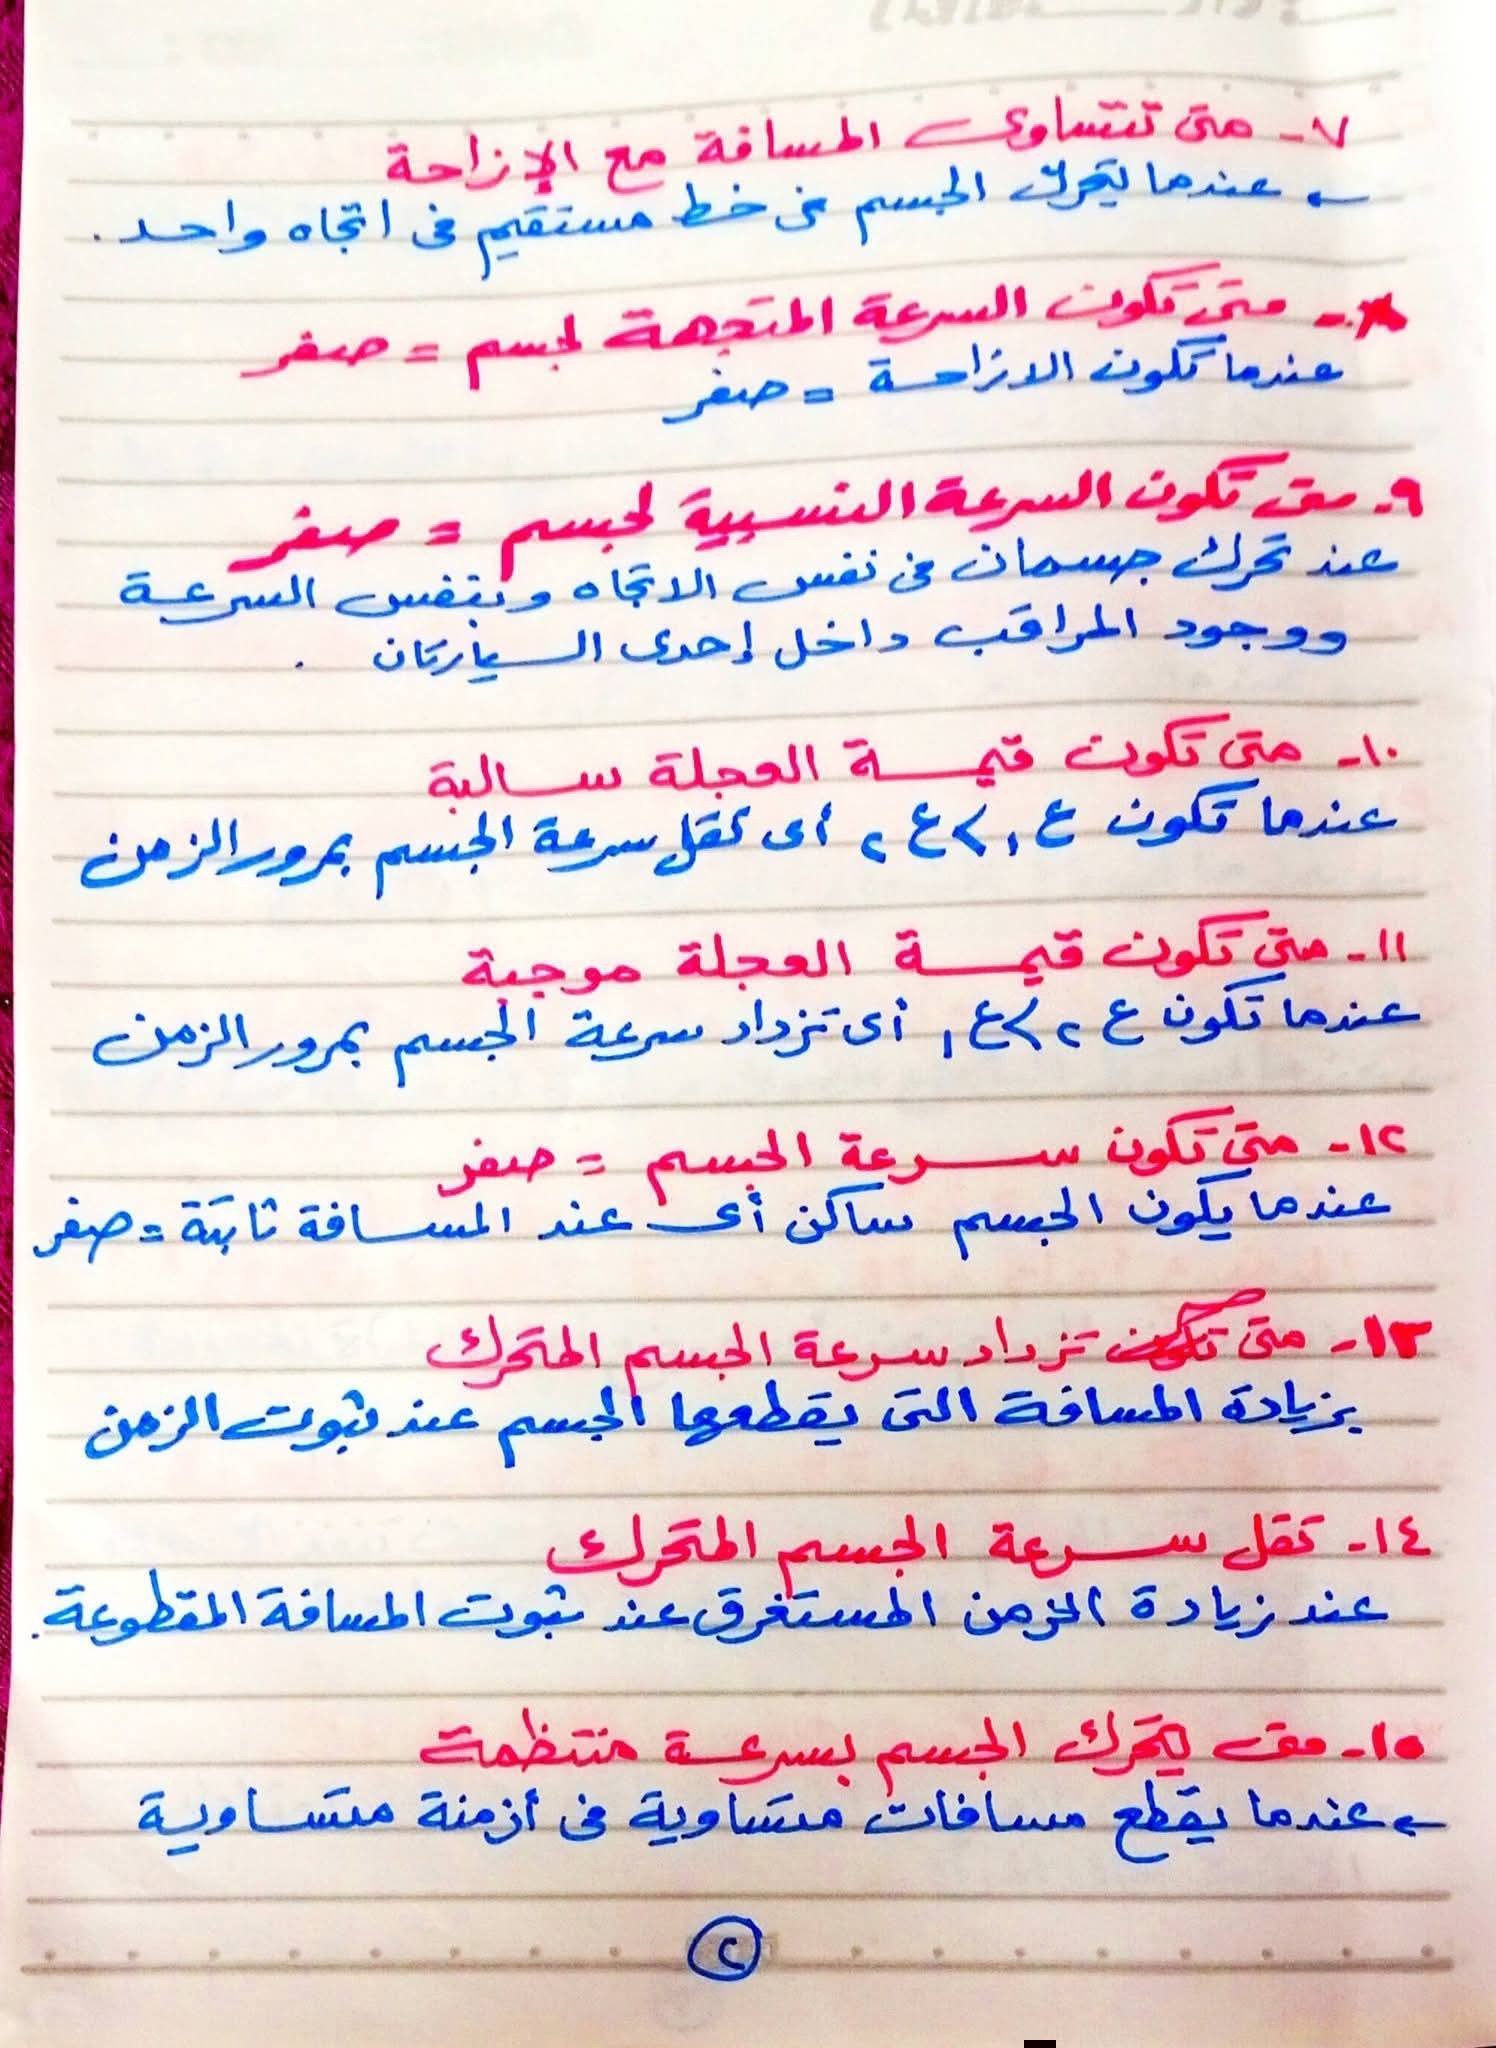 ٧- متى تتساوى المسافة مع الإزاحة
← عندما يتحرك الجسم فى خط مستقيم فى اتجاه واحد.
٨- متى تكون السرعة المتجهة لجسم = صفر
عندما تكون الازاحة = صفر
٩- متى تكون السرعة النسبية لجسم = صفر
عند تحرك جسمان فى نفس الاتجاه وبنفس السرعة
ووجود المراقب داخل إحدى السيارتان .
١٠- متى تكون قيمة العجلة سالبة
عندما تكون ع١ > ع٢ أى تقل سرعة الجسم بمرور الزمن
١١- متى تكون قيمة العجلة موجبة
عندما تكون ع٢ > ع١ أى تزداد سرعة الجسم بمرور الزمن
١٢- متى تكون سرعة الجسم = صفر
عندما يكون الجسم ساكن أى عند المسافة ثابتة = صفر
١٣- متى تزداد سرعة الجسم المتحرك
بزيادة المسافة التى يقطعها الجسم عند ثبوت الزمن
١٤- تقل سرعة الجسم المتحرك
عند زيادة الزمن المستغرق عند ثبوت المسافة المقطوعة.
١٥- متى يتحرك الجسم بسرعة منتظمة
← عندما يقطع مسافات متساوية فى أزمنة متساوية
٢